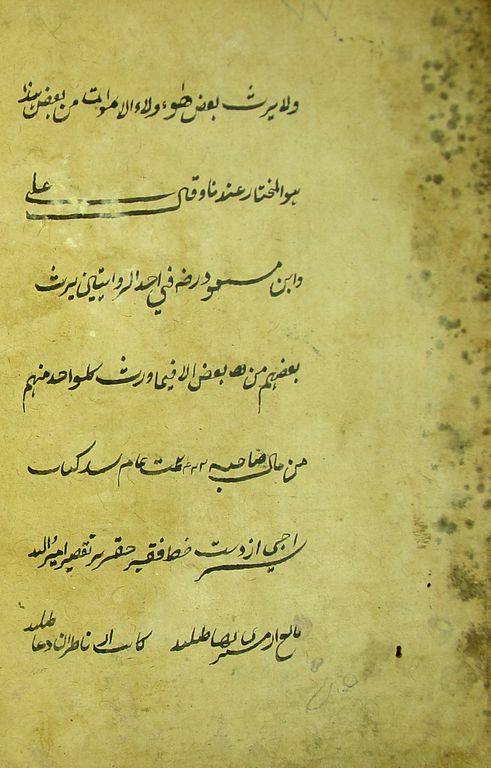 ولا يرث بعض هؤلاء الاموات من بعض هذا
هو المختار عندنا وقال علي
وابن مسعود رضه في احد الروايتين يرث
بعضهم من بعض الا فيما ورث كلواحد منهم
من مال صاحبه تمت تمام شد كتاب
راجي از دست خط فقير حقير پر تقصير
كاتب ناظران دعا طلبد